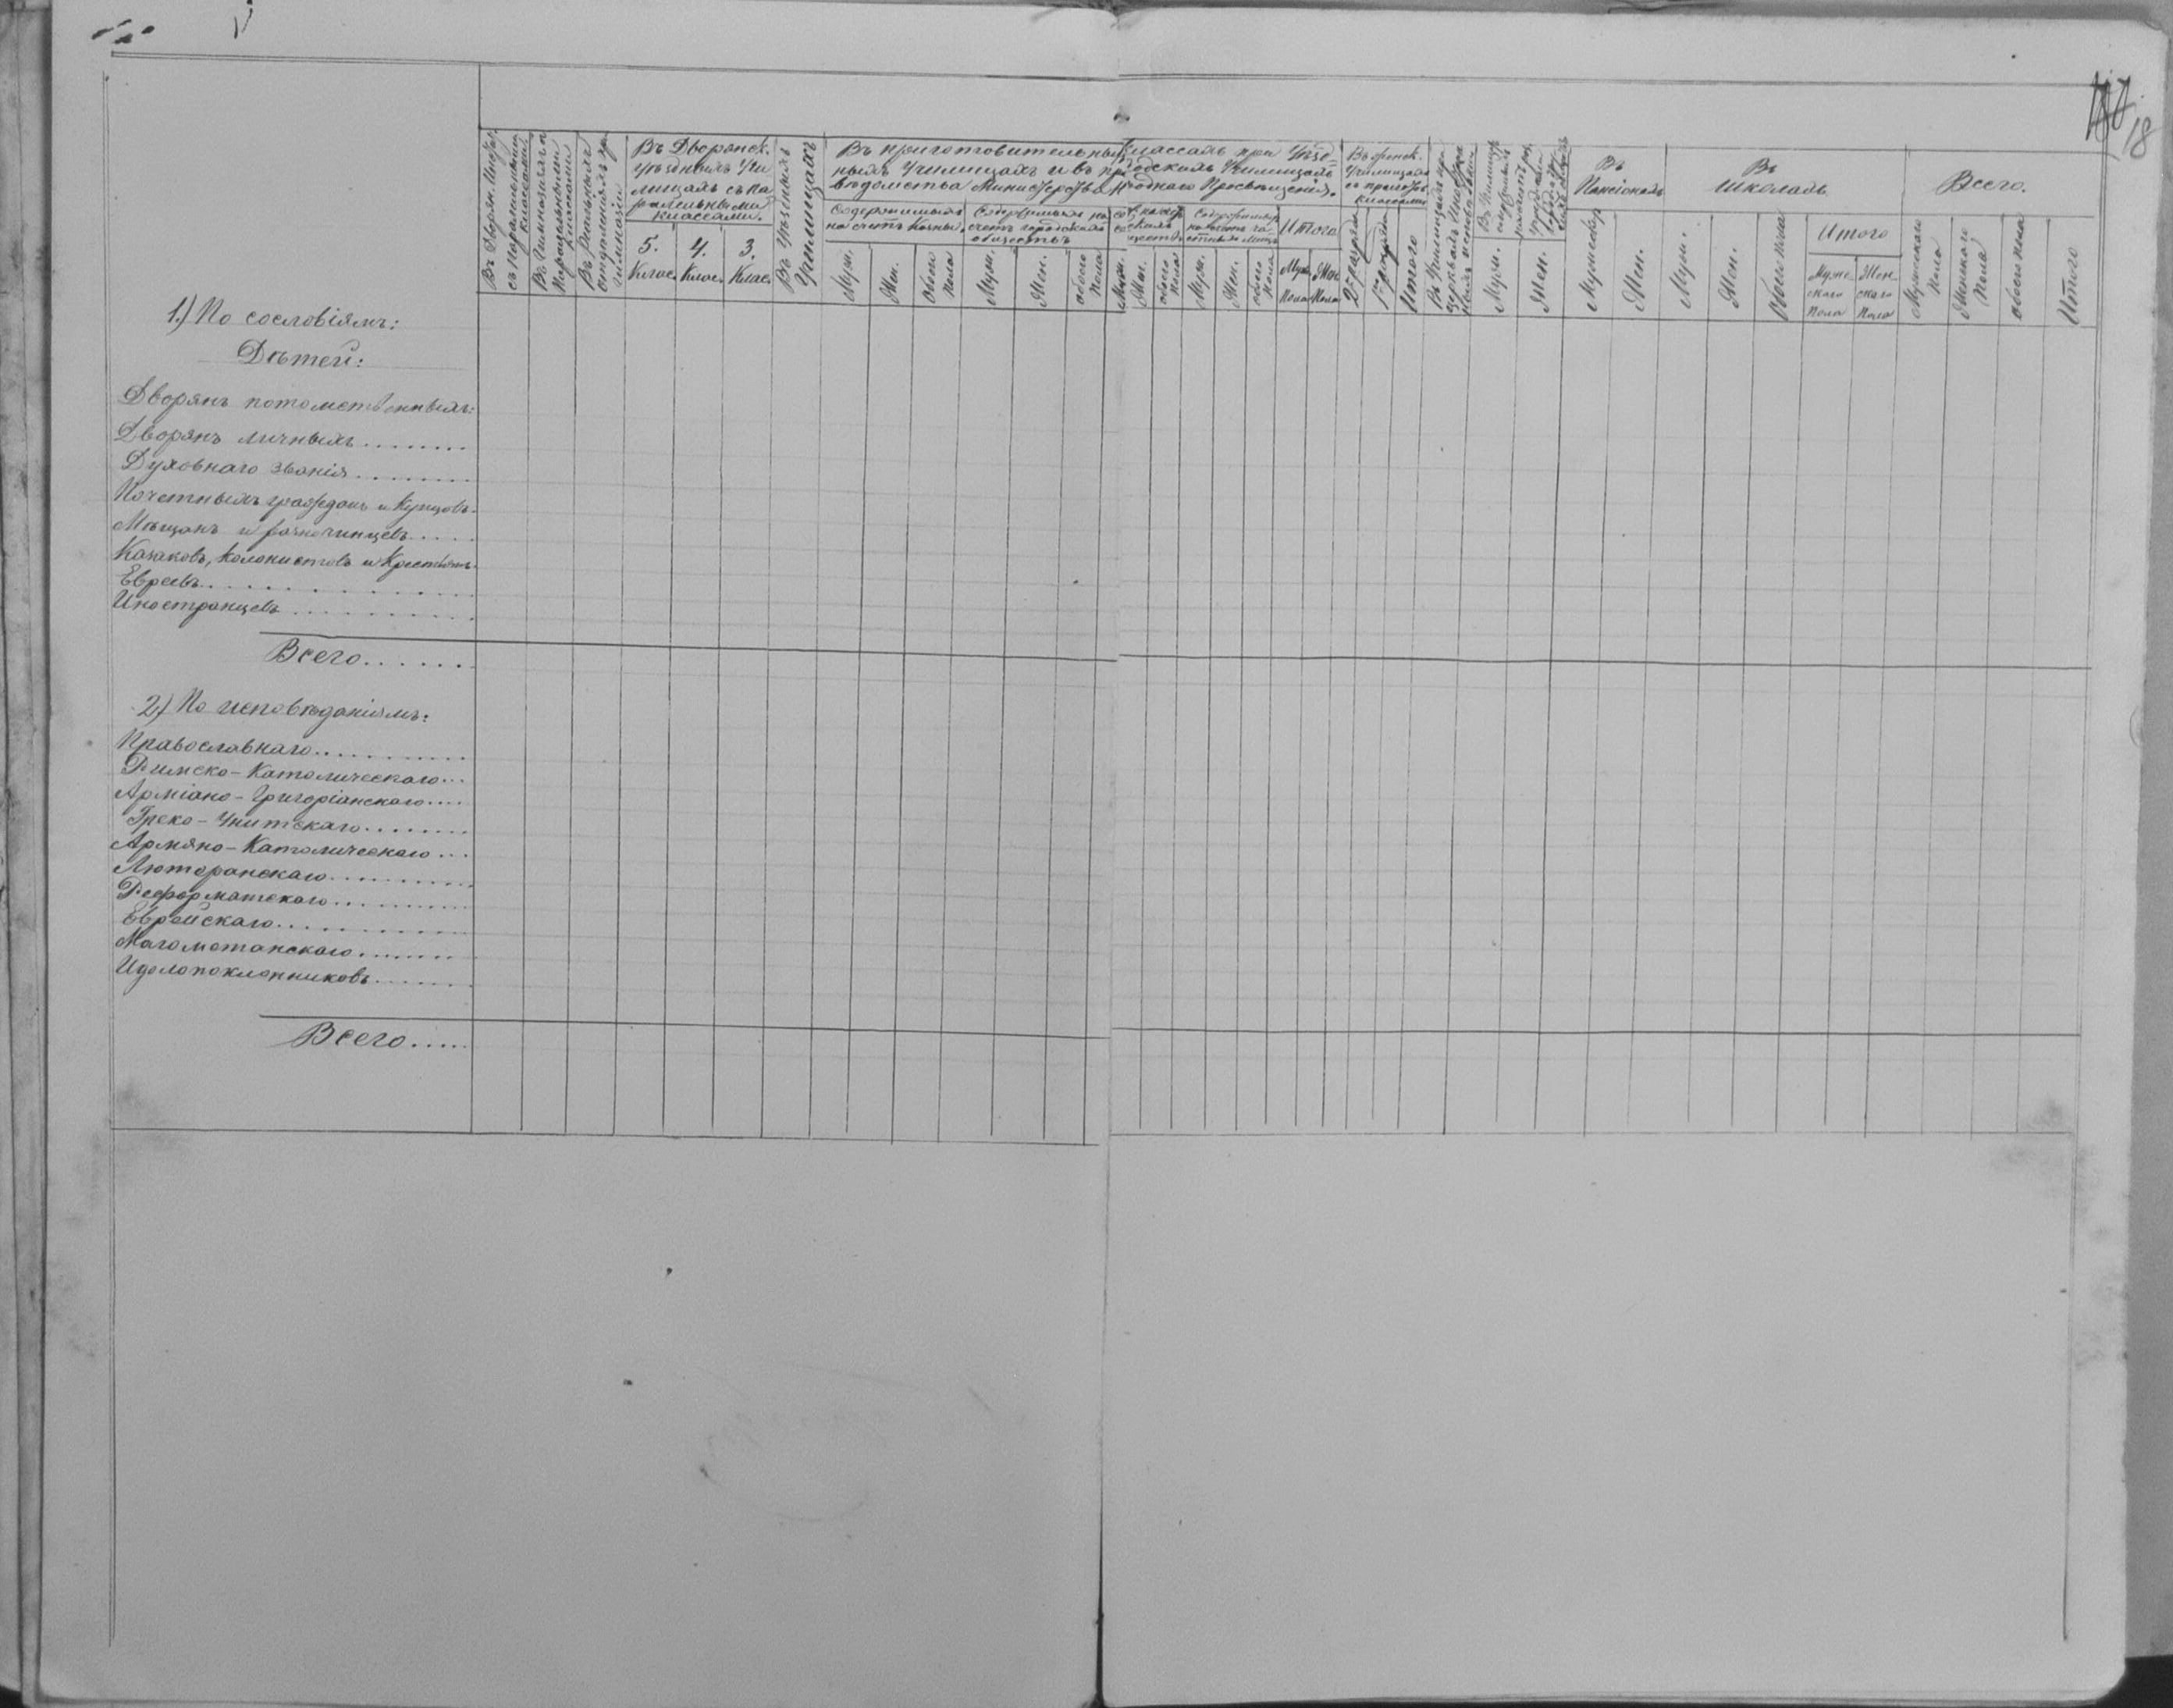 18
Въ Дворян. Инст.
съ паралельными
классами
Въ Гимназіяхъ съ
Паралельными
классами
Въ Реальныхъ
отделеніяхъ при
гимназіи
Въ Дворянск.
уѣздныхъ Учи
лищахъ съ па
ралельными
классами.
5.
Клас.
4.
Клас.
3.
Клас.
Въ Уѣздныхъ
Училищахъ
Въ приготовительныхъ классахъ при Уѣзд=
ныхъ Училищахъ и въ приходскихъ Училищахъ
вѣдомства Министерства Народнаго Просвѣщенія.
Содержимыхъ
на счетъ Казны.
Муж.
Жен.
Обоего
пола
Содержимыхъ на
счетъ городскихъ
обществъ
Муж.
Жен.
обоего
пола
Муж.
Жен.
обоего
пола
Содержимых
на счетъ ча-
стныхъ лицъ
Муж.
Жен.
обоего
пола
Итого
Муж.
Пола
Жен.
Пола
Училищахъ
классами
2го разряда
Итого
Въ Училищахъ при
церквахъ Иностран
ныхъ исповѣданій
Муж.
Жен.
Въ
Пансіонахъ
Мужеск.
Жен.
Въ
Школахъ
Муж.
Жен.
Обоего пола
Итого
Муже
скаго
пола
Жен
скаго
пола
Всего.
Мужескаго
Пола
Женскаго
Пола
обоего пола
Итого
1.) По сословіямъ:
Дѣтей:
Дворянъ потомственныхъ:
Дворянъ личныхъ........
Духовнаго званія........
Почетныхъ гражданъ и Купцовъ.
Мѣщанъ и разночинцевъ.....
Казаковъ, колонистовъ и Крестьянъ.
Евреевъ..............
Иностранцевъ...........
Всего......
2) По исповѣданіямъ:
Православнаго..........
Римско-Католическаго...
Арміано-Григоріанскаго....
Греко-Унитскаго........
Армяно-Католическаго...
Лютеранскаго..........
Реформатскаго.........
Еврейскаго............
Магометанскаго.......
Идолопоклонниковъ.......
Всего.....